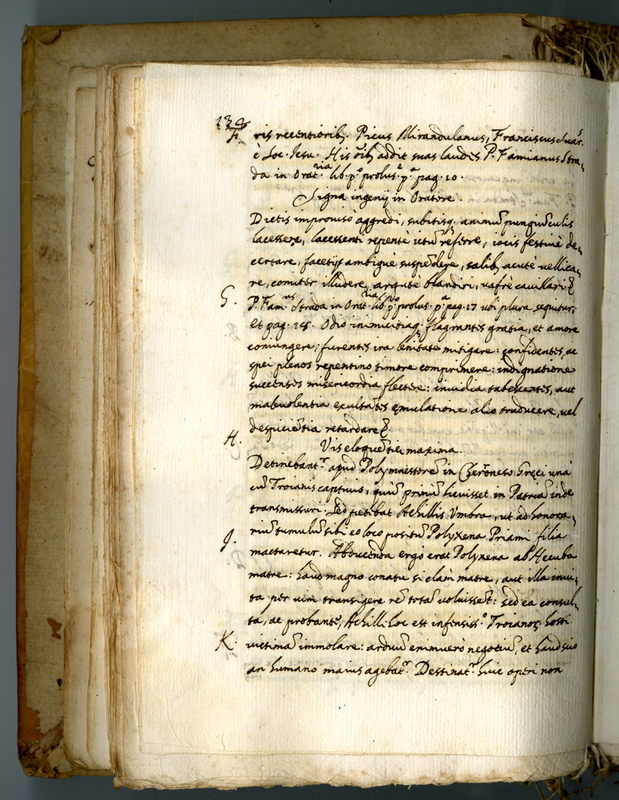 134
F. ris recentiorib9. Picus Mirandulanus, Franciscus Suar.s
è Soc. Jesu. His oīb9 addit suas laudes P. Famianus Stra,
da in Orat.ria lib. p.o prolus.e p.a pag. 10.
Signa ingenij in Oratore.
Dictis improviso aggredi, subitisq. animū pungiūculis
lacessere, lacessenti repentè ictū refūre, iocis festivè de,
certare, facetijs ambiguè suspēdere, salib9 acutè vellica,
re, comiter illudere, argutè blandiri, vafrè cavillari &
G. P. Fam.nus Strada in Orat.ria lib. p.o prolus. p.a pag. 17 ubi plura sequūtur;
et pag. 18. Odio inimicitiaq. flagrantes gratia, et amore
coniungere: furentis ira lenitate mitigare: confidentes, ac
spei plenos repentino timore comprimere: indignatione
succensos misericordia flectere: invidia tabescentes, aut
malevolentia exultātes emulatione aliò traducere, vel
despiciētia retardare &
H. Vis eloquētiae maxima.
Detinebant.r apud Polymnestorē in Chersoneso Greci unà
cū Troianis captivis, quū primū licuisset in Patriā inde
transmissuri. Sed petebat Achillis Umbra, ut ad honora,
riū tumulū sibi eo loco positū Polyxena Priami filia
J. mactaretur. Abducenda ergo erat Polyxena ab Hecuba
matre: haud magno conatu si clàm matre, aut illa invi,
ta per vim transigere rē totā voluissēt: sed ea consul,
ta, ac probante, Achilli hoc est infensiss.o Troianoq. hosti
K. victimā immolare: arduū enimvero negotiū, et haud scio
an humano maius agebat.r Destinat.r huic operi non